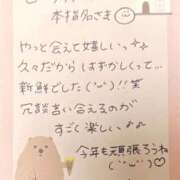 本指名さま
やっと会えて嬉しい
久々だからはずかしくって…
新鮮でした(˙ᵕ˙)!!笑
冗談言い合えるのが
すごく楽しい♪♪
今年も頑張ろうね
(˙ᵕ˙)♡